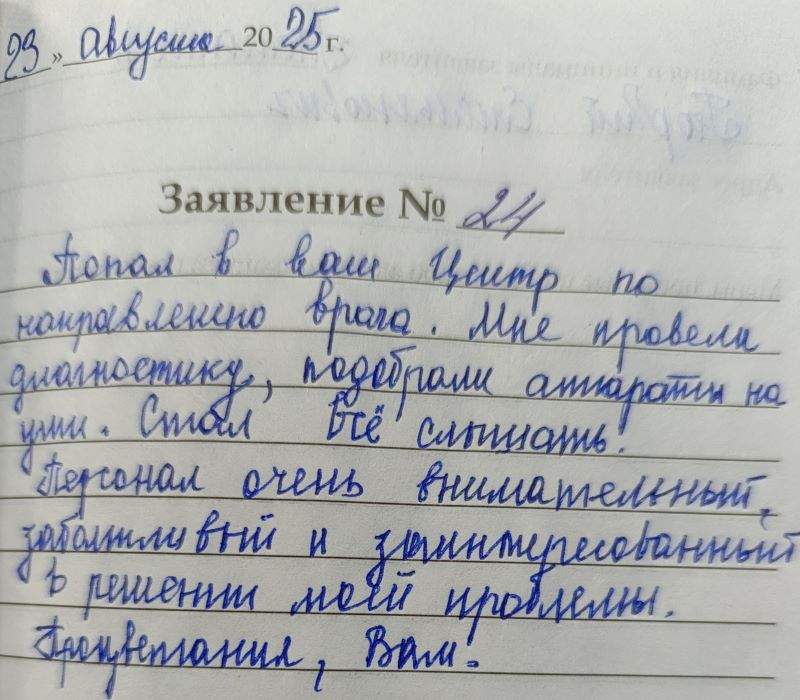 23 » августа 2025 г.
Заявление № 24
Попал в ваш Центр по
направлению врача. Мне провели
диагностику, подобрали аппараты на
уши. Стал всё слышать!
Персонал очень внимательный,
заботливый и заинтересованный
в решении моей проблемы.
Процветания, Вам.